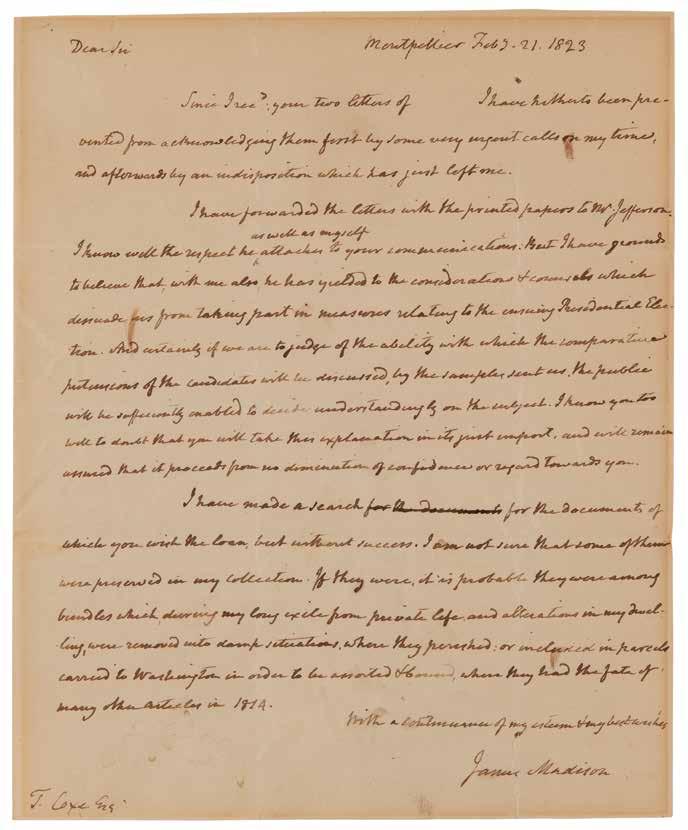 Dear Sir Montpellier Feby. 21. 1823
Since I recd: your two letters of I have hitherto been pre-
vented from acknowledging them first by some very urgent calls on my time,
and afterwards by an indisposition which has just left me.
I have forwarded the letters with the printed papers to Mr. Jefferson.
as well as myself
I know well the respect he attaches to your communications: But I have grounds
to believe that, with me also he has yielded to the considerations & counsels which
dissuade us from taking part in measures relating to the ensuing Presidential Elec-
tion. And certainly if we are to judge of the ability with which the comparative
pretensions of the candidates will be discussed, by the samples sent us, the public
will be sufficiently enabled to decide understandingly on the subject. I know you too
well to doubt that you will take this explanation in its just import, and will remain
assured that it proceeds from no diminution of confidence or regard towards you.
I have made a search for the documents for the documents of
which you wish the loan, but without success. I am not sure that some of them
were preserved in my collection. If they were, it is probable they were among
bundles which during my long exile from private life, and alterations in my dwel-
ling, were removed into damp situations, where they perished: or included in parcels
carried to Washington in order to be assorted & bound, where they had the fate of
many other articles in 1814.
With a continuance of my esteem & my best wishes
James Madison
T. Coxe Esq